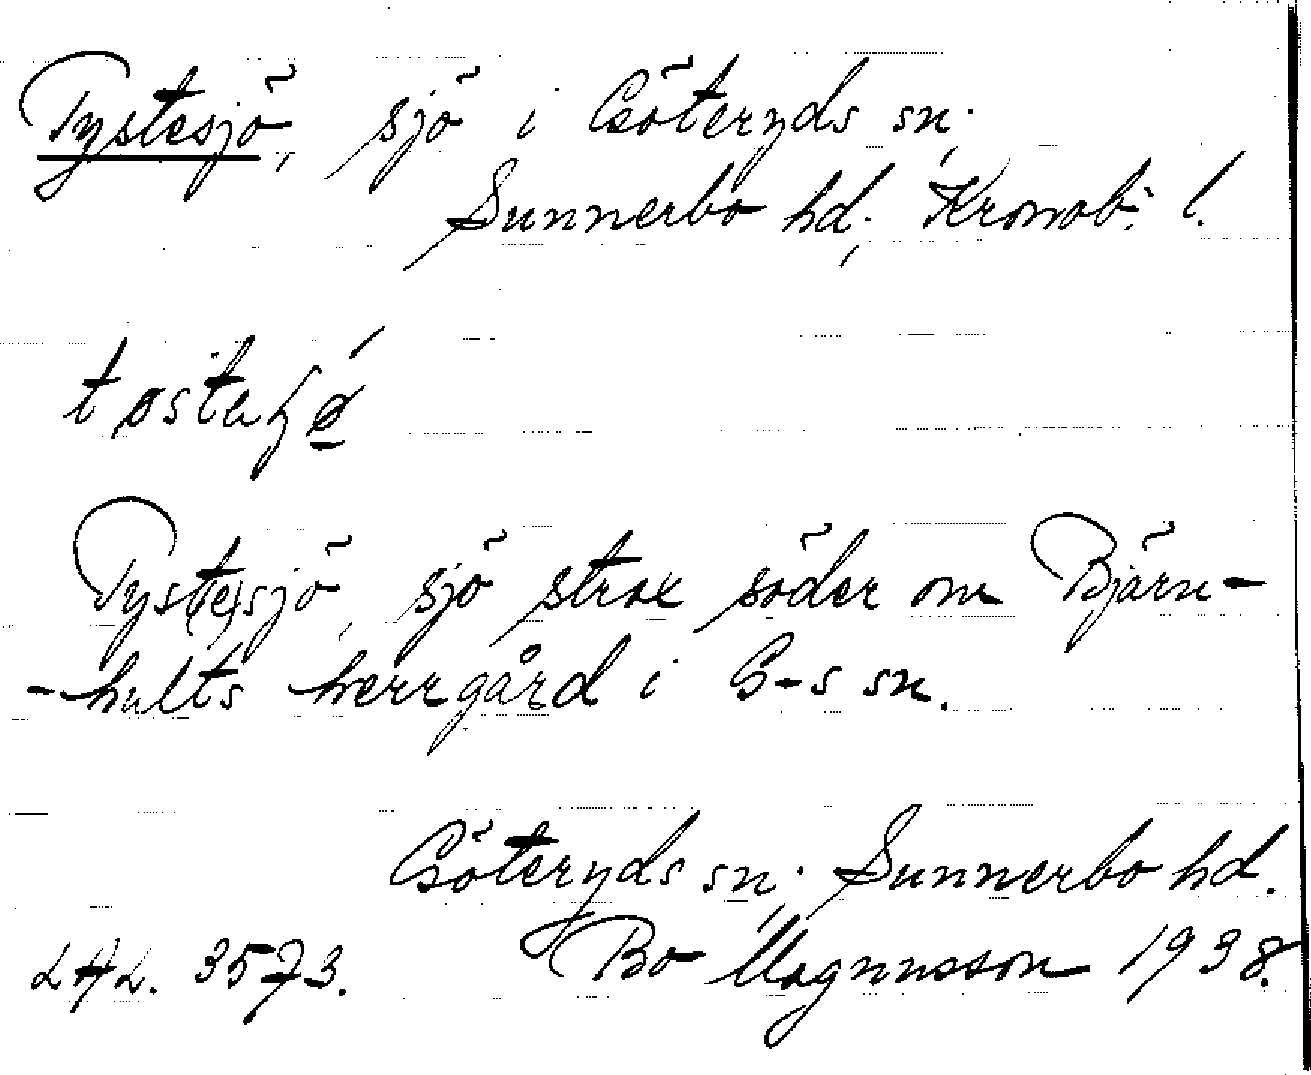 Tystesjö, sjö i Göteryds sn;
Sunnerbo hd; Kronob: l.
Tyst(e)sjö, sjö strax söder om Bjärn-
-hults herrgård i G-s sn.
Göteryds sn; Sunnerbo hd.
LAL. 3573. Bo Magnusson 1938.